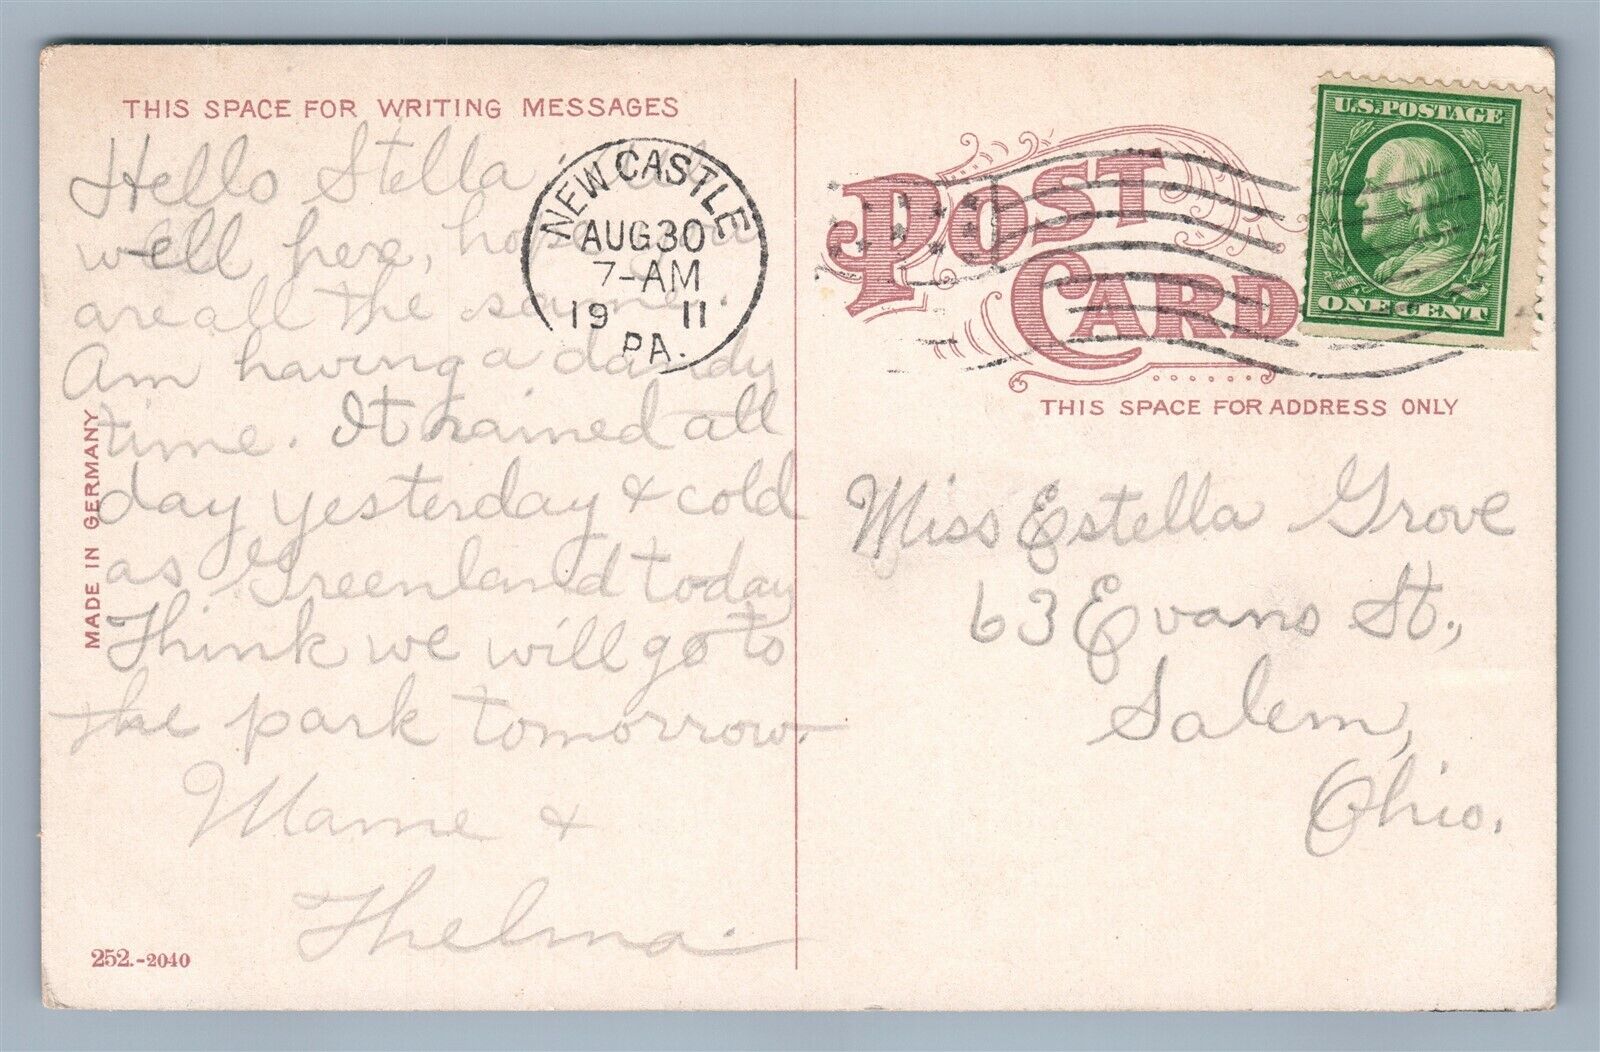 THIS SPACE FOR WRITING MESSAGES
Hello Stella, all
well here, hope you
are all the same.
Am having a dandy
time. It rained all
day yesterday & cold
as Greenland today
Think we will go to
the park tomorrow.
Mame &
Thelma.
MADE IN GERMANY
252.-2040
NEW CASTLE
AUG 30
7-AM
19 11
PA.
POST
CARD
U.S. POSTAGE
ONE CENT
THIS SPACE FOR ADDRESS ONLY
Miss Estella Grove
63 Evans St.,
Salem,
Ohio.